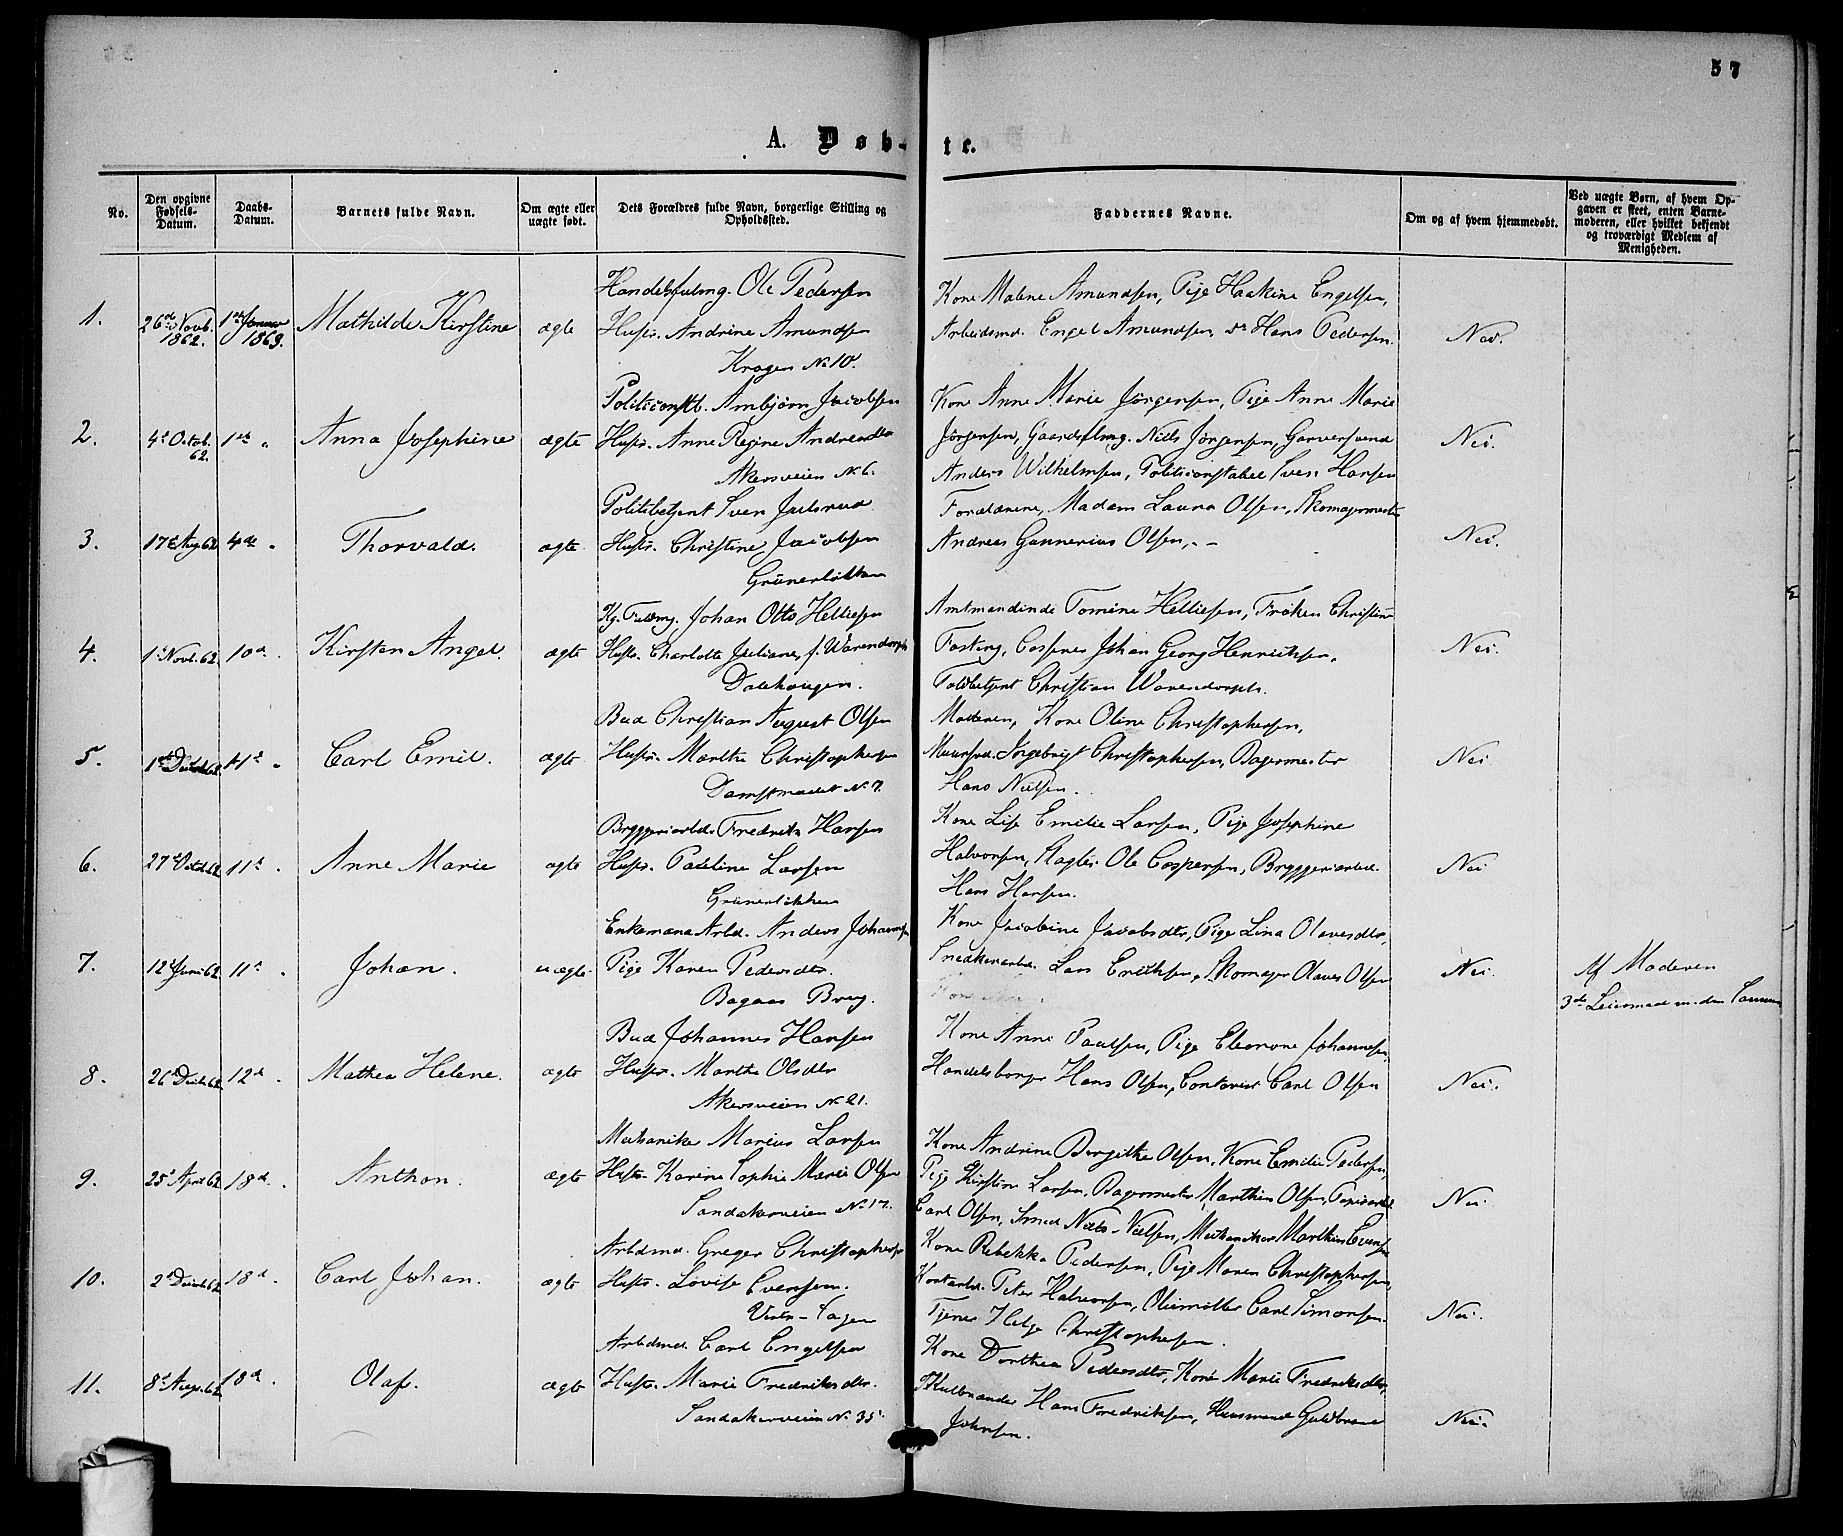 57
A. Døbte.
No.
Den opgivne Fødsels-Datum.
Daabs-Datum.
Barnets fulde Navn.
Om ægte eller uægte født.
Dets Forældres fulde Navn, borgerlige Stilling og Opholdssted.
Faddernes Navne.
Om og af hvem hjemmedøbt.
Ved uægte Børn, af hvem Opgaven er skeet, enten Barnemoderen, eller hvilket bekjendt og troværdigt Medlem af Menigheden.
Handelsfulmg. Ole Pedersen
Kone Malene Amundsen, Pige Haakine Engelsen,
1. 26d Novb. 1862. 1ste Januar 1863. Mathilde Kirstine ægte Hustr. Andrine Amundsen
Arbeidsmd. Engel Amundsen, do Hans Pedersen. Nei.
Krogen No 10.
Politiconstb. Arnbjørn Jacobsen
Kone Anne Marie Jørgensen, Pige Anne Marie
2. 4d Octob. 62. 1ste " Anna Josephine ægte Hustr. Anne Regine Andreasdtr
Jørgensen, Gaardsfulmg. Niels Jørgensen, Garversvend Nei.
Akersveien No 6.
Anders Wilhelmsen, Politiconstabel Sven Hansen
Politibetjent Sven Julsrud
Forældrene, Madam Laura Olsen, Skomagermester
3. 17d Aug. 62 4de " Thorvald. ægte Hustr. Christine Jacobsen
Andreas Gunnerius Olsen, Nei.
Grünerløkken
Kg. Fuldmg. Johan Otto Helliesen
Amtmandinde Tomine Helliesen, Frøken Christine
4. 1d Novb. 62 10d. Kirsten Angel. ægte Hustr. Charlotte Juliane, f. Warendorph
Fasting, Casserer Johan Georg Henrichsen, Nei.
Dalehaugen.
Toldbetjent Christian Warendorph.
Bud Christian August Olsen
Moderen, Kone Oline Christophersen,
5. 1d Decb 62 11d. Carl Emil. ægte Hustr. Marthe Christophersen
Muursvd. Ingebrigt Christophersen, Bagermester Nei
Damstrædet No 7.
Hans Nielsen.
Bryggeriarbd. Fredrik Hansen
Kone Lise Emilie Larsen, Pige Josephine
6. 27d Octob 62 11d. Anne Marie ægte Hustr. Pauline Larsen
Halvorsen, Slagter Ole Caspersen, Bryggeriarbd. Nei
Grünerløkken
Hans Hansen.
Enkemand Arbd. Anders Johannesen
Kone Jacobine Jacobsdtr, Pige Lina Olavesdtr,
7. 12d Juni 62 11d. Johan. uægte. Pige Karen Pedersdtr.
Snedkerarbd. Lars Erichsen, Skomager Olaves Olsen Nei. Af Moderen
Bagaas Brug.
3de Leiermaal m. den samme
Bud Johannes Hansen
Kone Anne Paulsen, Pige Eleonore Johannesen
8. 26d Decb 62 12d. Mathea Helene. ægte Hustr. Marthe Olsdtr
Handelsborger Hans Olsen, Contorist Carl Olsen Nei.
Akersveien No 21.
Mechaniker Marius Larsen
Kone Andrine Bergithe Olsen, Kone Emilie Pedersen,
9. 25d April 62 18d. Anthon. ægte Hustr. Karine Sophie Marie Olsen
Pige Kirstine Larsen, Bagermester Marthin Olsen, Papirarbd. Nei.
Sandakerveien No 17.
Carl Olsen, Smed Niels Nielsen, Mechaniker Marthin Evensen
Arbdmd. Greger Christophersen
Kone Rebekka Pedersen, Pige Maren Christophersen,
10. 2d Decb 62 18d. Carl Johan. ægte Hustr. Lovise Evensen.
Kortarbd. Peter Halvorsen, Oliemøller Carl Simonsen. Nei.
Tjener Helge Christophersen.
Arbdmd. Carl Engelsen
Kone Dorthea Pedersdtr, Kone Marie Fredriksdtr,
11. 8d Aug. 62 18d. Olaf. ægte Hustr. Marie Fredriksdtr.
Kulbrænder Hans Fredriksen, Huusmand Guldbrand Nei.
Sandakerveien No 35.
Johnsen.